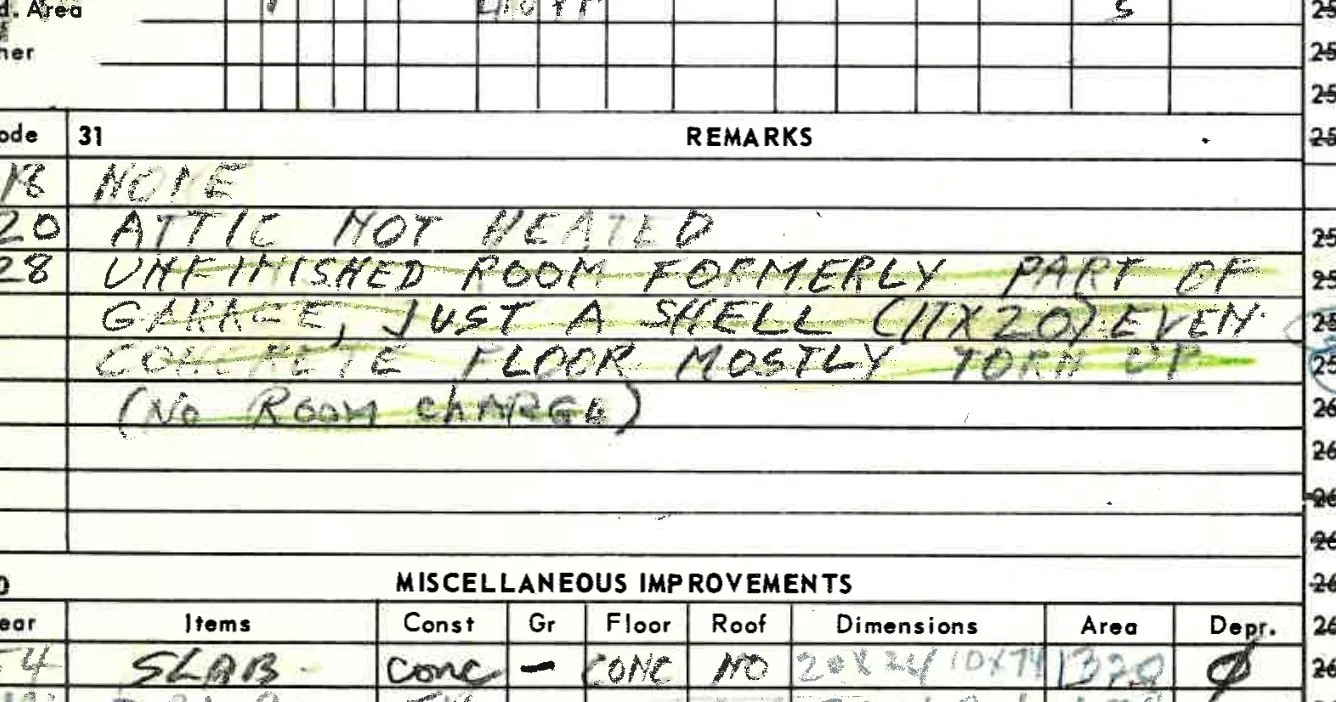 d. Area
her
ode 31 REMARKS
18 NONE
20 ATTIC NOT HEATED
28 UNFINISHED ROOM FORMERLY PART OF
GARAGE, JUST A SHELL (11X20) EVEN
CONCRETE FLOOR MOSTLY TORN UP
(No Room chARGE)
MISCELLANEOUS IMPROVEMENTS
ear Items Const Gr Floor Roof Dimensions Area Depr.
54 SLAB conc - CONC NO 20X24/10X74 Ø